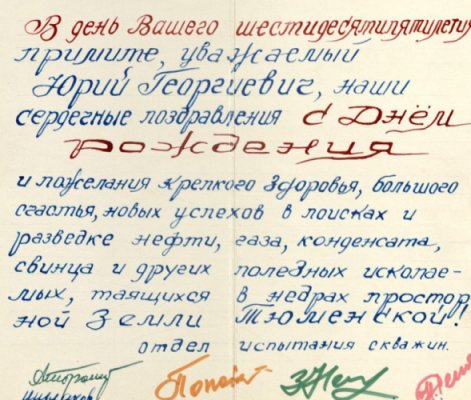 В день Вашего шестидесятипятилетия
примите, уважаемый
Юрий Георгиевич, наши
сердечные поздравления с Днём
рождения
и пожелания крепкого здоровья, большого
счастья, новых успехов в поисках и
разведке нефти, газа, конденсата,
свинца и других полезных ископае-
мых, таящихся в недрах простор
ной Земли Тюменской!
отдел испытания скважин.